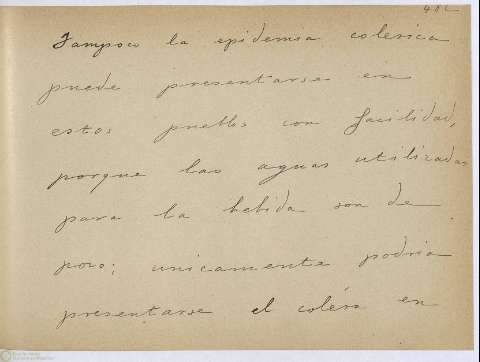 Tampoco la epidemia colerica
puede presentarse en
estos pueblos con facilidad,
porque las aguas utilizadas
para la bebida son de
pozo; unicamente podria
presentarse el colera en